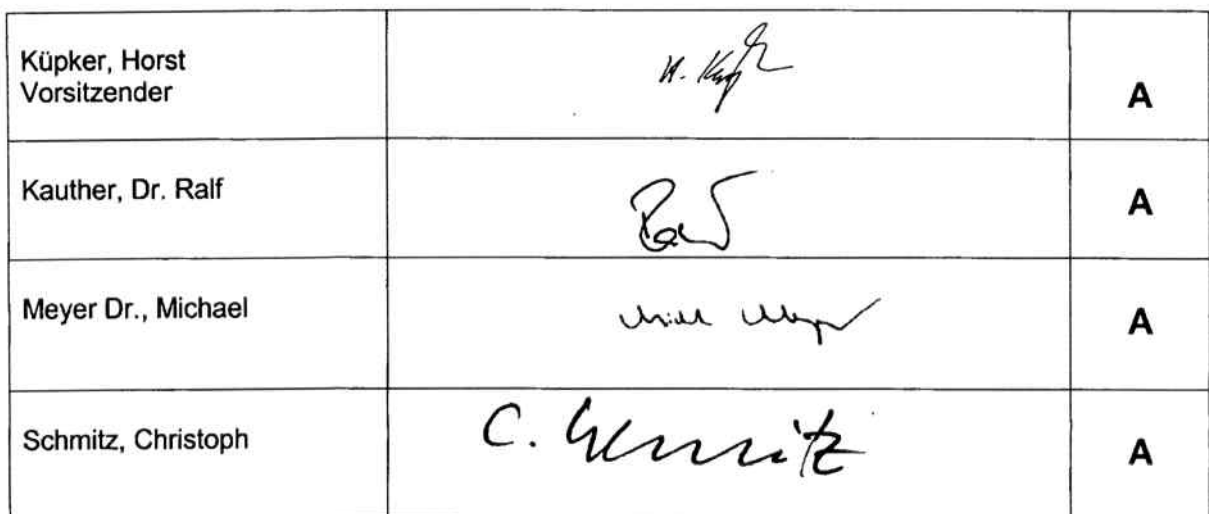 Küpker, Horst
Vorsitzender
A
Kauther, Dr. Ralf
A
Meyer Dr., Michael
A
Schmitz, Christoph
C. Schmitz
A